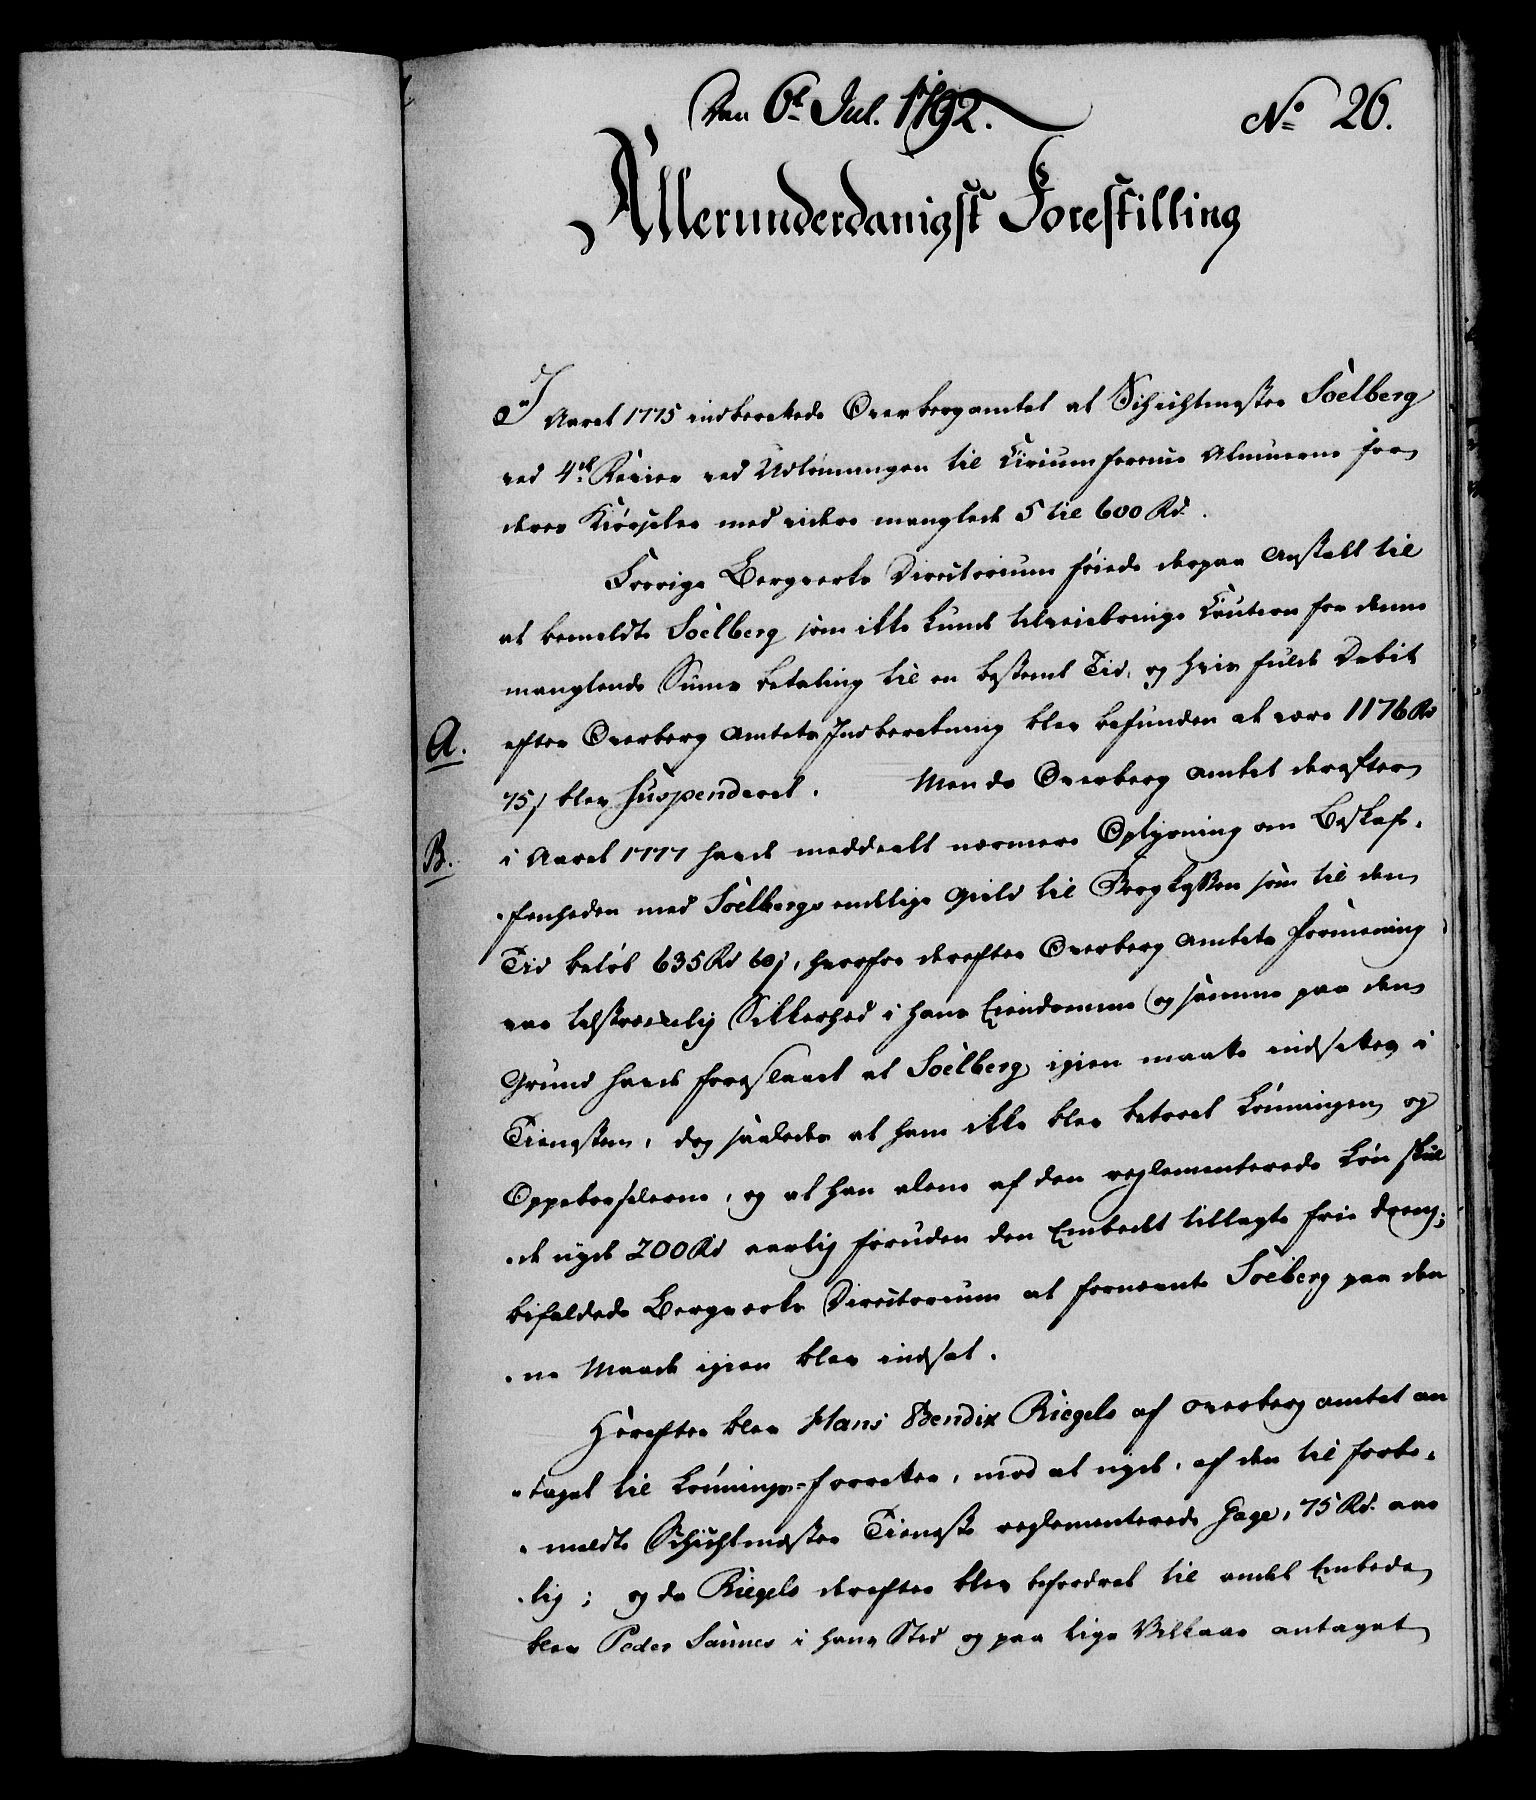 Den 6t Jul. 1792.
No 26.
Allerunderdanigst Forestilling
I Aaret 1775 indberettede Overbergamtet at Schichtmester Söelberg
ved 4de Revier ved Udlönningen til Cirkumferences Almuerne for
deres Kiörseler med videre manglede 5 til 600 Rd.
Forrige Bergverks Directorium föiede derpaa Anstalt til
at bemeldte Söelberg som ikke kunde tilveiebringe Caution for denne
manglende Sums betaling til en bestemt Tid, og hvis fulde Debit
A.
efter Overberg Amtets Indberetning blev befunden at være 1176 Rd
75 s blev suspenderet. Men da Overberg Amtet derefter
B.
i Aaret 1777 havde meddeelt nærmere Oplysning om Beskaf-
-fenheden med Söelbergs endelige Gield til Bergkassen som til den
Tid belöb 635 Rd 60 s, hvorfor derefter Overberg Amtets Formening
var tilstrækkelig Sikkerhed i hans Eiendomme og samme paa den
Grund havde foreslaaet at Söelberg igien maatte indsættes i
Tienesten, dog saaledes at ham ikke blev betroet Lönningen og
Oppebørselerne, og at han alene af den reglementerede Lön skul
-de nyde 200 Rd aarlig foruden den Embedet tillagte frie Dreng;
bifaldede Bergverks Directorium at fornævnte Soeberg paa den
-ne Maade igien blev indsat.
Herefter blev Hans Bendix Riegels af Overberg Amtet an
-taget til Lönnings-forretter, mod at nyde, af den til forbe-
-meldte Schichtmester Tieneste reglementerede Gage, 75 Rd. aar
-lig; og da Riegels derefter blev befordret til andet Embede
blev Peder Saunes i hans Sted og paa lige Villkaar antaget